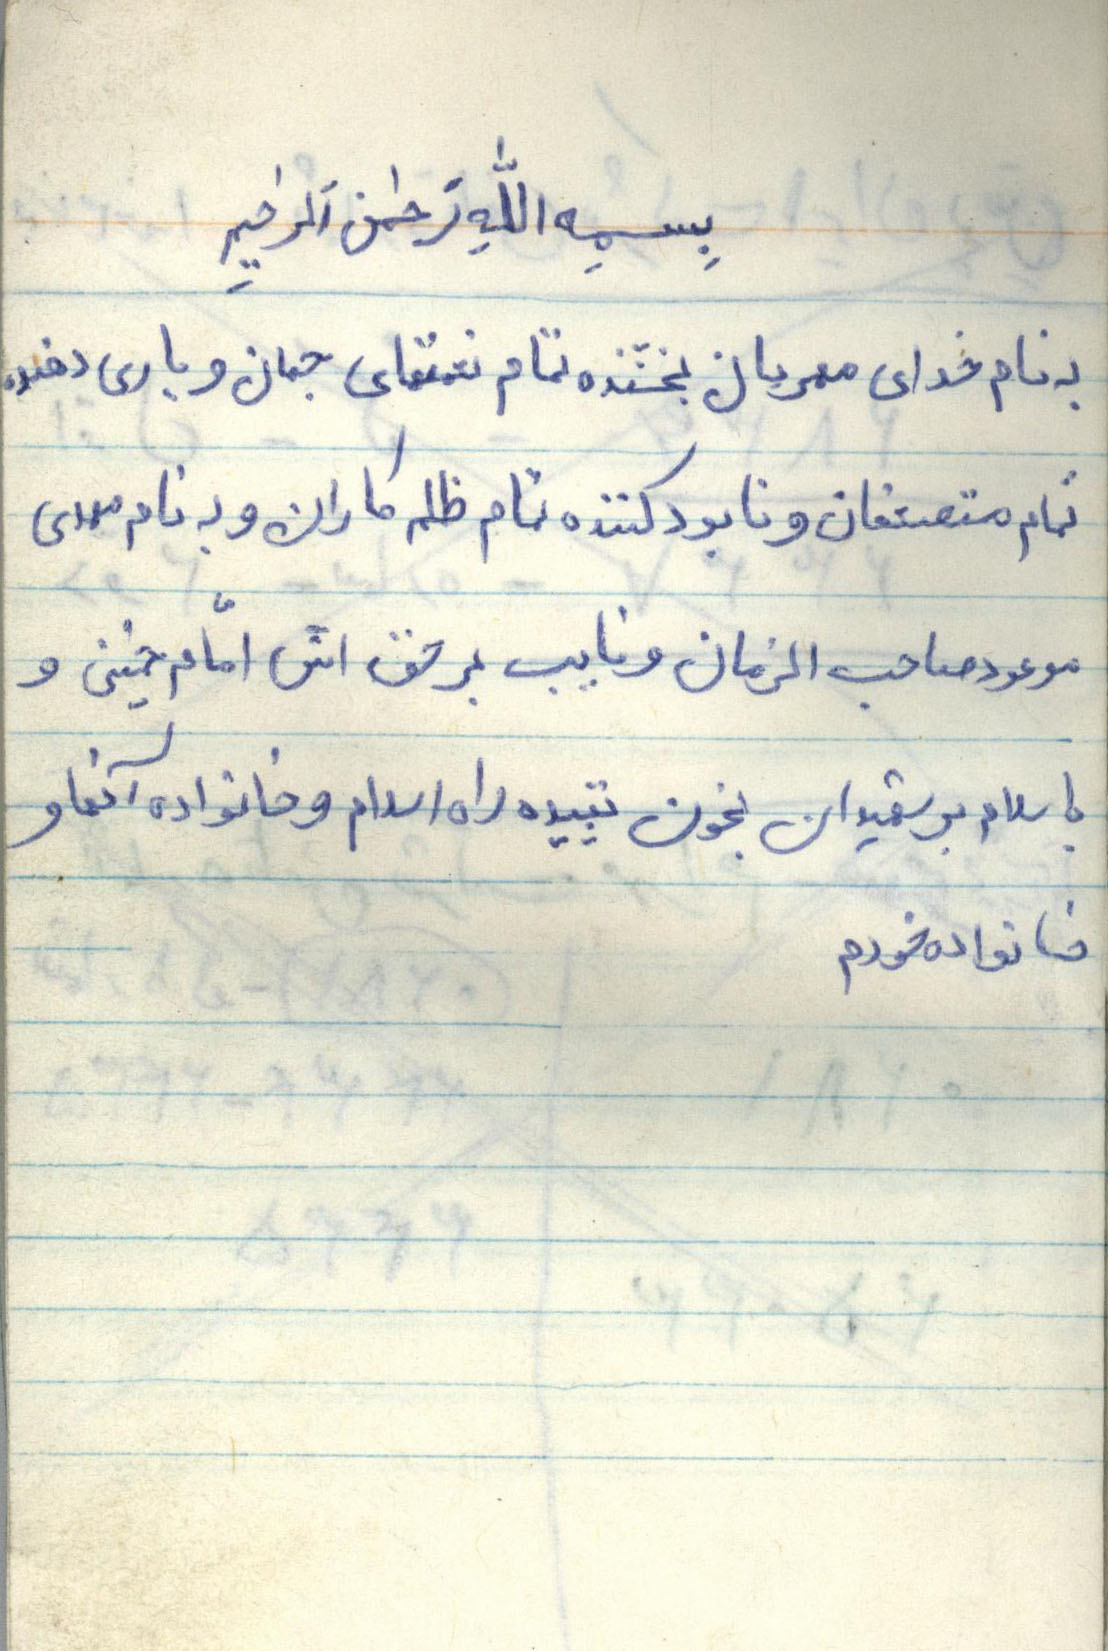 بسمه اللّه رَحمٰن اَلرحیم
به نام خدای مهربان بخشنده تمام نعمتهای جهان و یاری دهنده
تمام متصعفان و نابود کننده تمام ظلم کاران و به نام مهدی
موعود صاحب الزمان و نایب بر حق اش امّام خمینی و
با سلام بر شهیدان بخون تپیده راه اسلام و خانواده آنها و
خانواده خودم